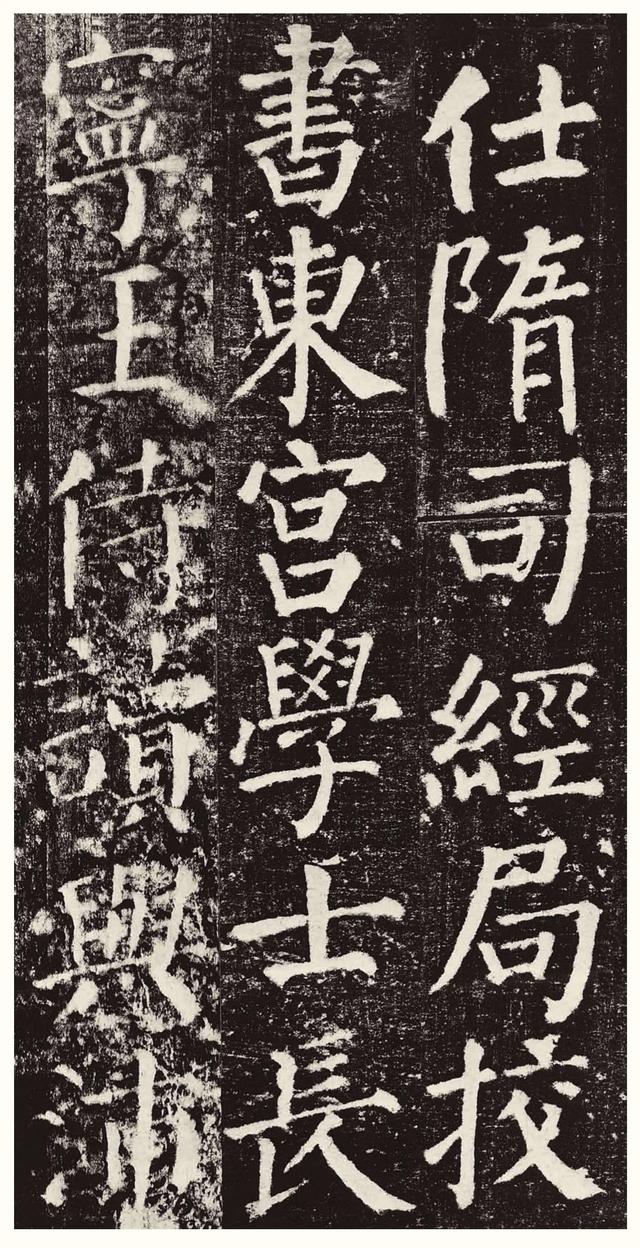 仕隋司經局挍
書東宮學士長
寧王侍讀與沛